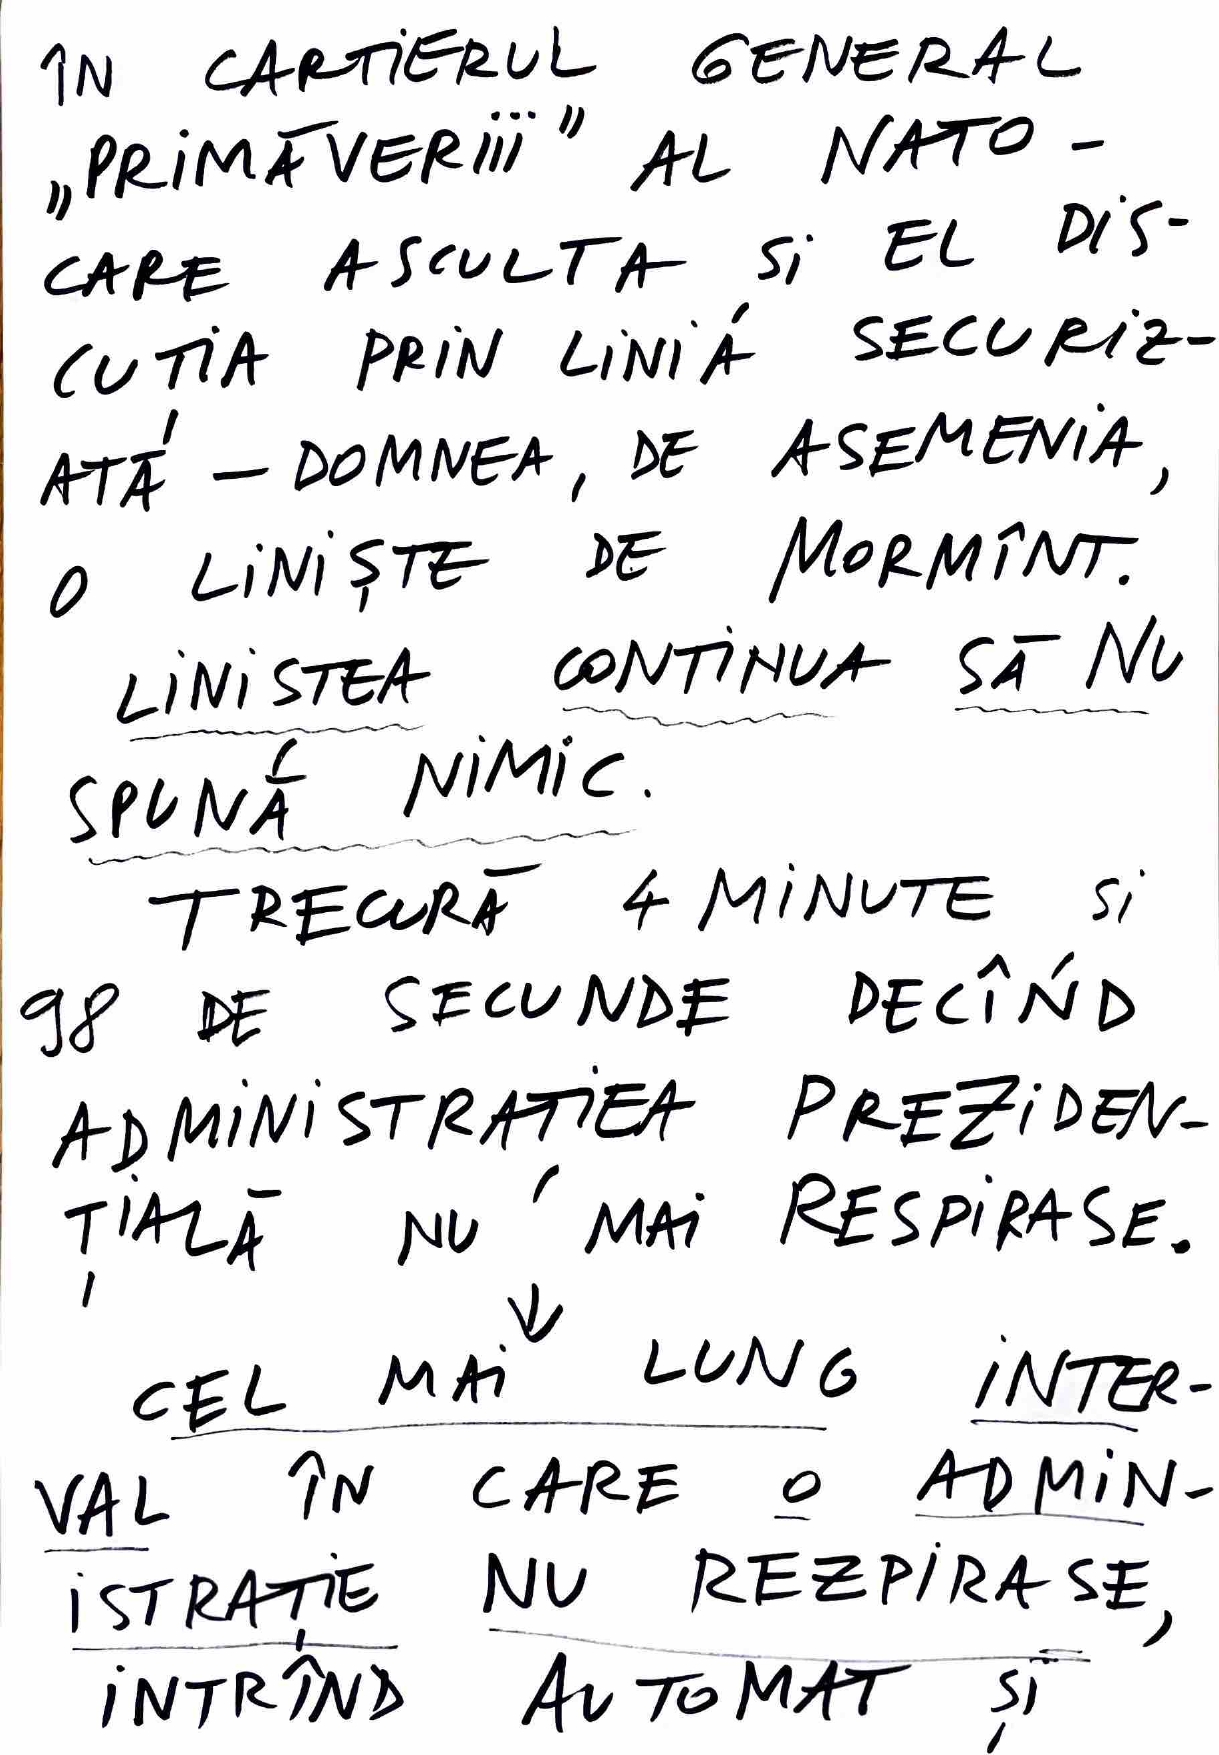 ÎN CARTiERUL GENERAL
„PRiMĂVERiii” AL NATO -
CARE ASCULTA Si EL DiS-
CUTiA PRiN LiNiĂ SECURiZ-
ATĂ – DOMNEA, DE ASEMENiA,
O LiNiȘTE DE MORMÎNT.
LiNiSTEA CONTiNUA SĂ NU
SPUNĂ NiMiC.
TRECURĂ 4 MiNUTE Si
98 DE SECUNDE DECÎND
ADMiNiSTRAȚiEA PREZiDEN-
ȚiALĂ NU MAi RESPiRASE.
↓
CEL MAi LUNG iNTER-
VAL ÎN CARE O ADMiN-
iSTRAȚiE NU REZPiRASE,
iNTRÎND AUTOMAT Și